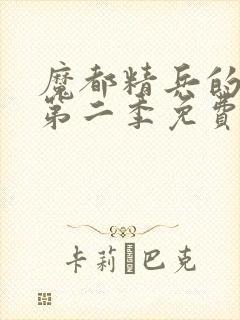 魔都精兵的
第二季免費
卡莉 巴克